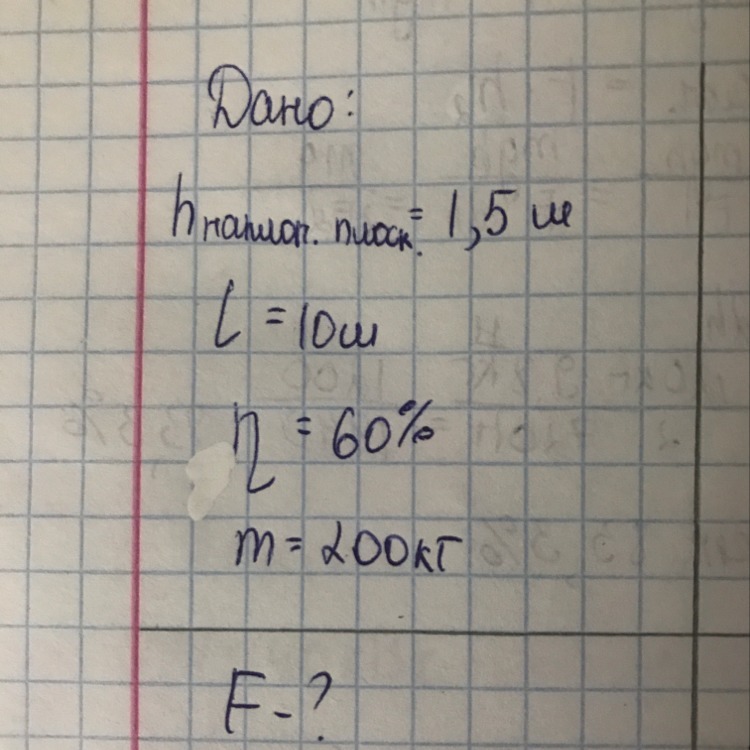 Дано:
hнаклон. плоск. = 1,5 м
l = 10м
η = 60%
m = 200кг
F - ?